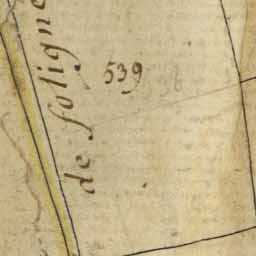 de foligne
539